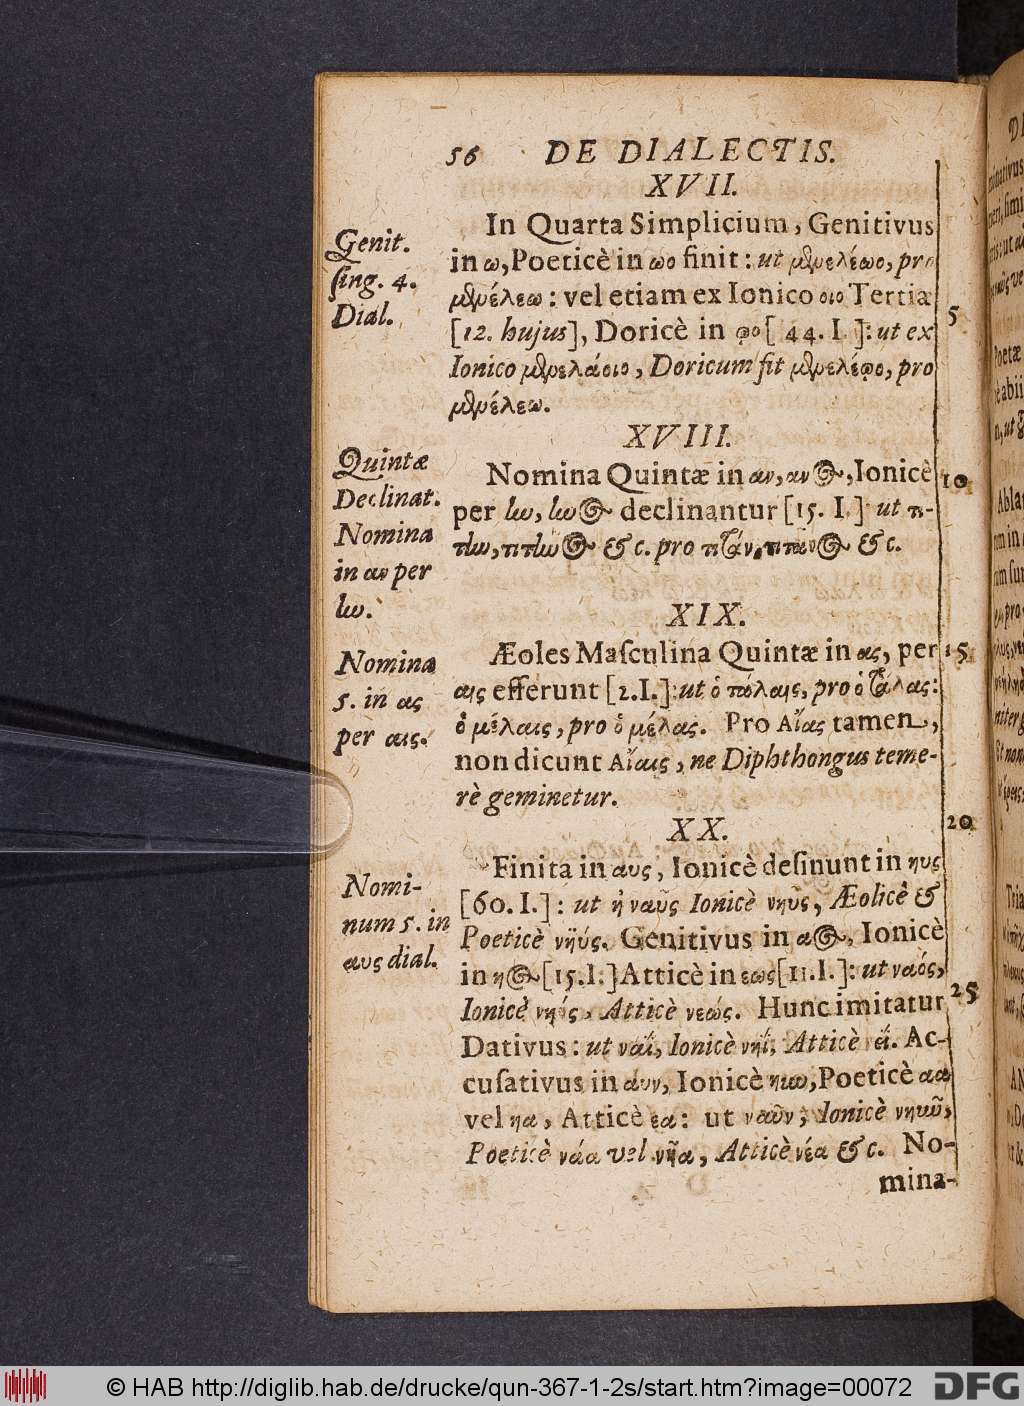 56 DE DIALECTIS.
XVII.
Genit.
sing. 4.
Dial.
In Quarta Simplicium, Genitivus
in ω, Poeticè in ωο finit: ut μενελέωο, pro
μενέλεω: vel etiam ex Ionico οιο Tertiæ
[12. hujus], Doricè in ῳο [44. I.]: ut ex
5
Ionico μενελάοιο, Doricum fit μενελέῳο, pro
μενέλεω.
XVIII.
Quintæ
Declinat.
Nomina
in αν per
ην.
Nomina Quintæ in αν, ανος, Ionicè
10
per ην, ηνος declinantur [15. I.] ut π-
&c. pro &c.
XIX.
Nomina
5. in ας
per αις.
Æoles Masculina Quintæ in ας, per
15
αις efferunt [2. I.]: ut ὁ τάλαις, pro ὁ τάλας:
ὁ μέλαις, pro ὁ μέλας. Pro Αἴας tamen,
non dicunt Αἴαις, ne Diphthongus teme-
rè geminetur.
XX.
20
Nomi-
num 5. in
αυς dial.
Finita in αυς, Ionicè desinunt in ηυς
[60. I.]: ut ἡ ναῦς Ionicè νηῦς, Æolicè &
Poeticè νηΰς. Genitivus in αος, Ionicè
in ηος [15. I.] Atticè in εως [11. I.]: ut ναός,
25
Ionicè νηός, Atticè νεώς. Hunc imitatur
Dativus: ut ναΐ, Ionicè νηΐ, Atticè εΐ. Ac-
cusativus in αυν, Ionicè ηυν, Poeticè αα
vel ηα, Atticè εα: ut ναῦν, Ionicè νηῦν,
Poeticè νάα vel νῆα, Atticè νέα &c. No-
mina-
© HAB http://diglib.hab.de/drucke/qun-367-1-2s/start.htm?image=00072
DFG